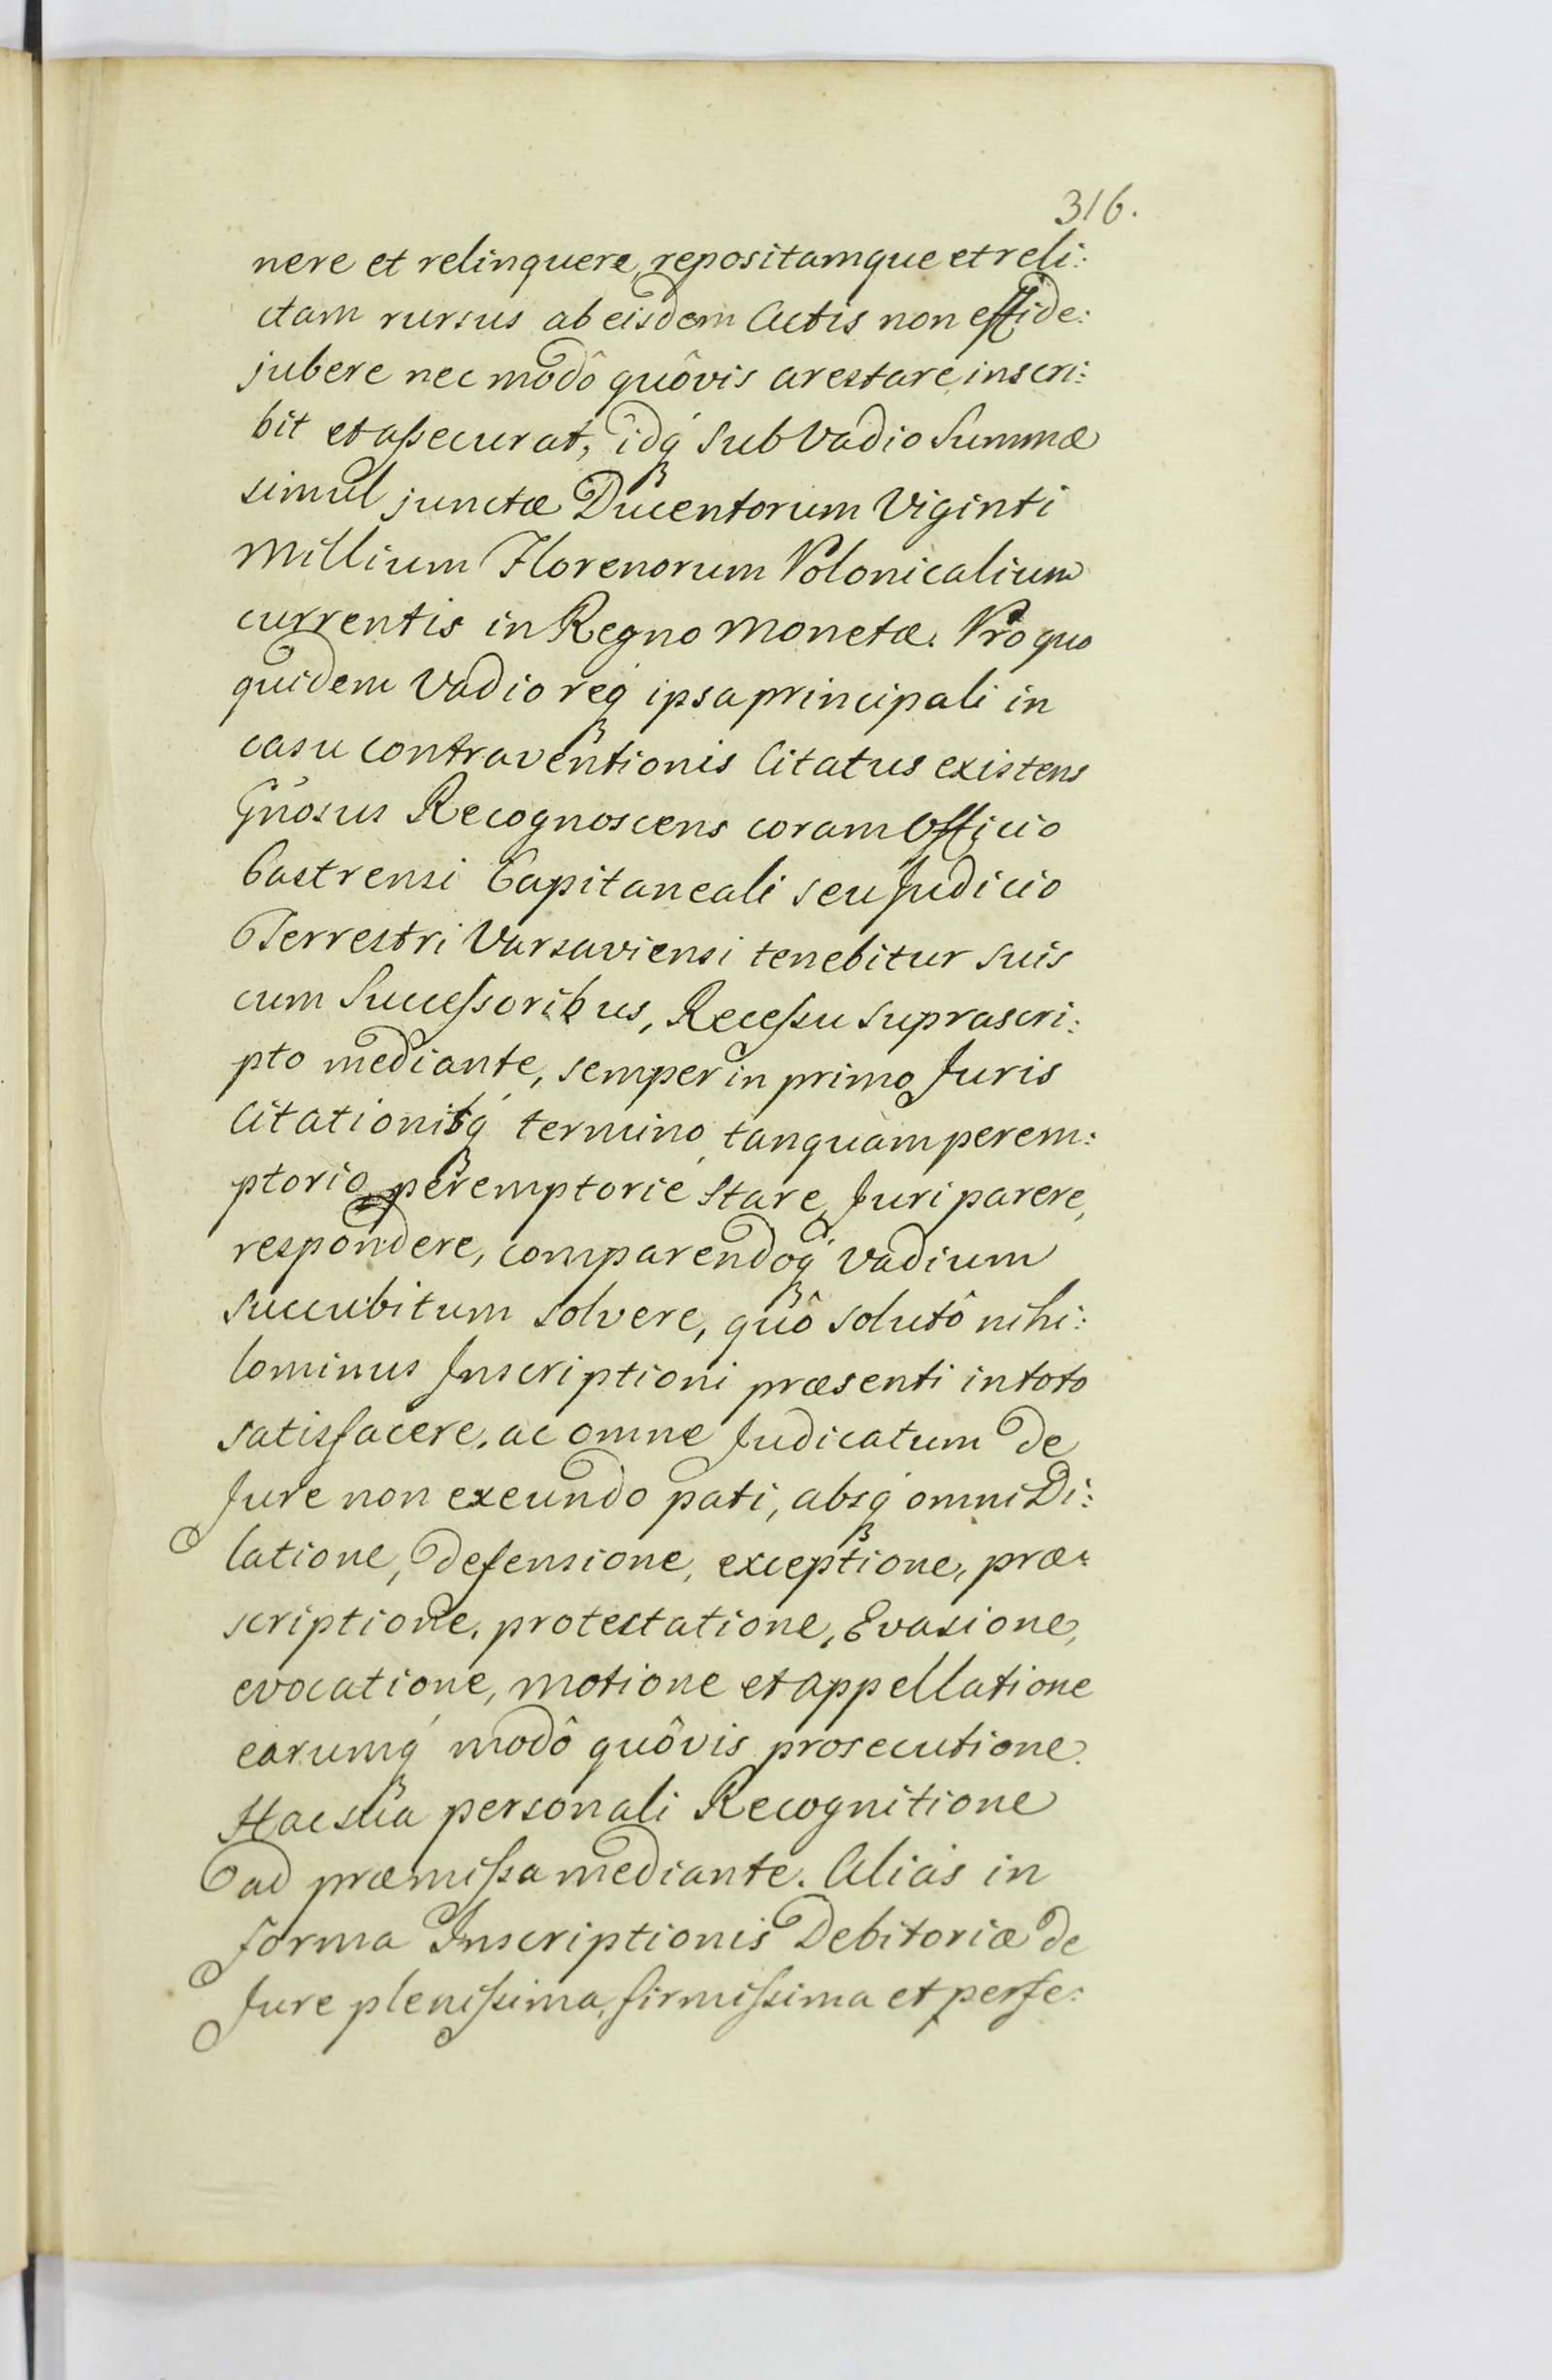 316.
nere et relinquere, repositamque et reli:
ctam rursus ab eisdem Actis non effide:
jubere nec modô quôvis arestare, inscri:
bit et assecurat, idq́ sub Vadio Summæ
simul junctæ Ducentorum Viginti
Millium Florenorum Polonicalium
currentis in Regno Monetæ. Pro quo
quidem Vadio req́ ipsa principali in
casu contraventionis Citatus existens
Gn̄osus Recognoscens coram Officio
Castrensi Capitaneali seu Judicio
Terrestri Varsaviensi tenebitur suis
cum Successoribus, Recessu suprascri:
pto mediante, semper in primo Juris
Citationisq́ termino, tanquàm perem:
ptorio, peremptoriè stare, Juri parere,
respondere, comparendoq́ vadium
succubitum solvere, quô solutô nihi:
lominus Inscriptioni præsenti in toto
satisfacere, ac omne Judicatum de
Jure non exeundo pati, absq́ omni Di:
latione, defensione, exceptione, præ:
scriptione, protestatione, Evasione,
evocatione, motione et appellatione
earumq́ modô quôvis prosecutione.
Hac sua personali Recognitione
ad præmissa mediante. Aliàs in
forma Inscriptionis Debitoriæ de
Jure plenissima, firmissima et perfe: